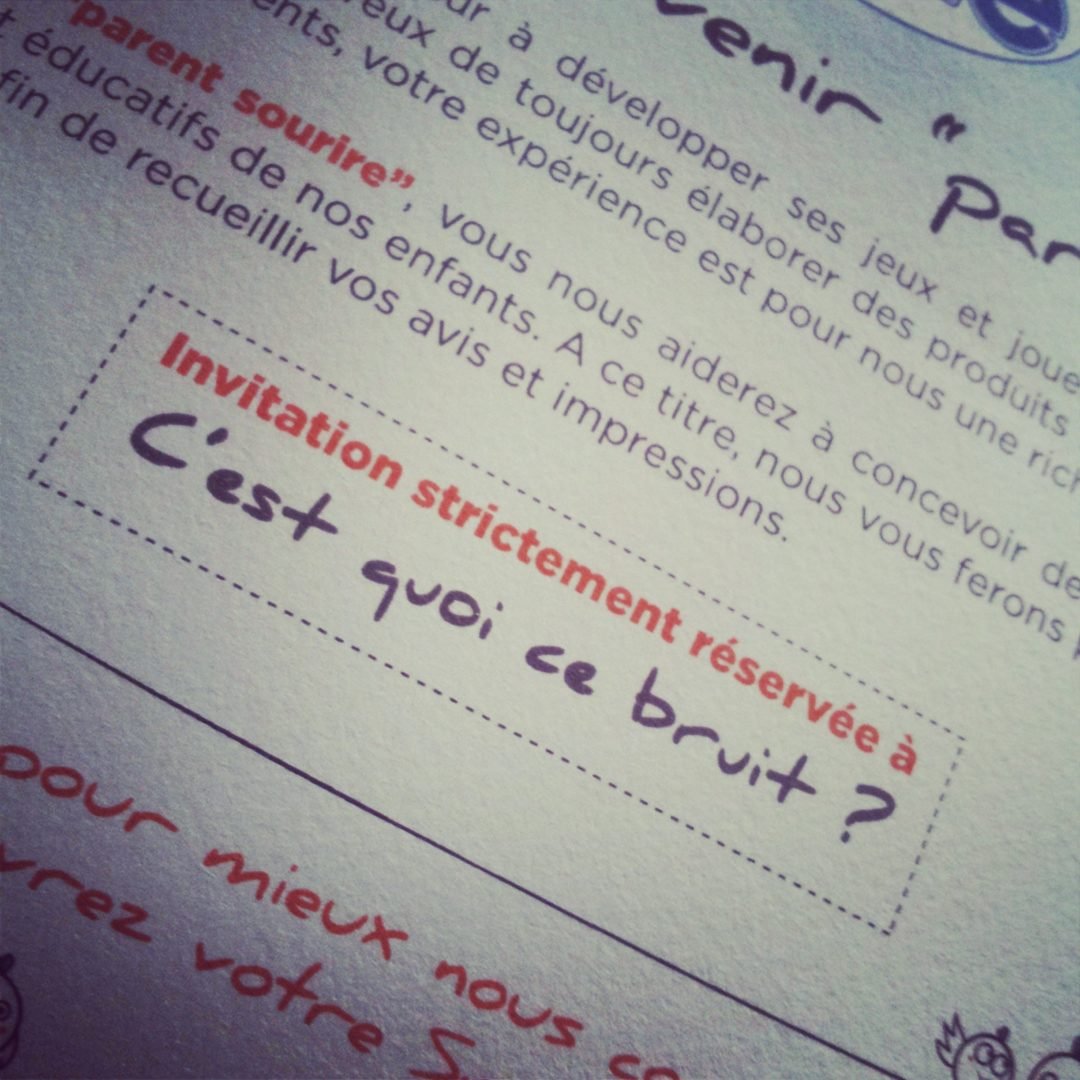 venir "
Par
ur à développer ses jeux et joue
reux de toujours élaborer des produits
ents, votre expérience est pour nous une rich
"parent sourire", vous nous aiderez à concevoir de
t éducatifs de nos enfants. A ce titre, nous vous ferons p
fin de recueillir vos avis et impressions.
Invitation strictement réservée à
C'est quoi ce bruit ?
pour mieux nous co
vrez votre S